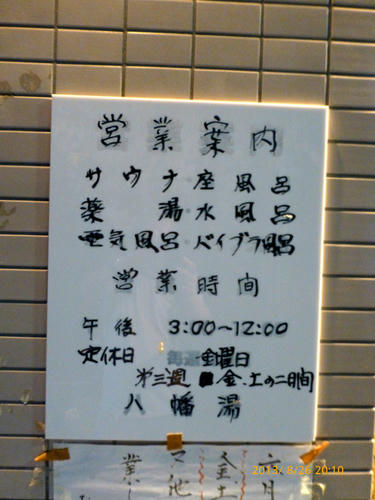 営業案内
サウナ 座風呂
薬湯 水風呂
電気風呂 バイブラ風呂
営業時間
午後 3:00〜12:00
定休日 毎週金曜日
第三週 金.土の二日間
八幡湯
2013/8/26 20:10